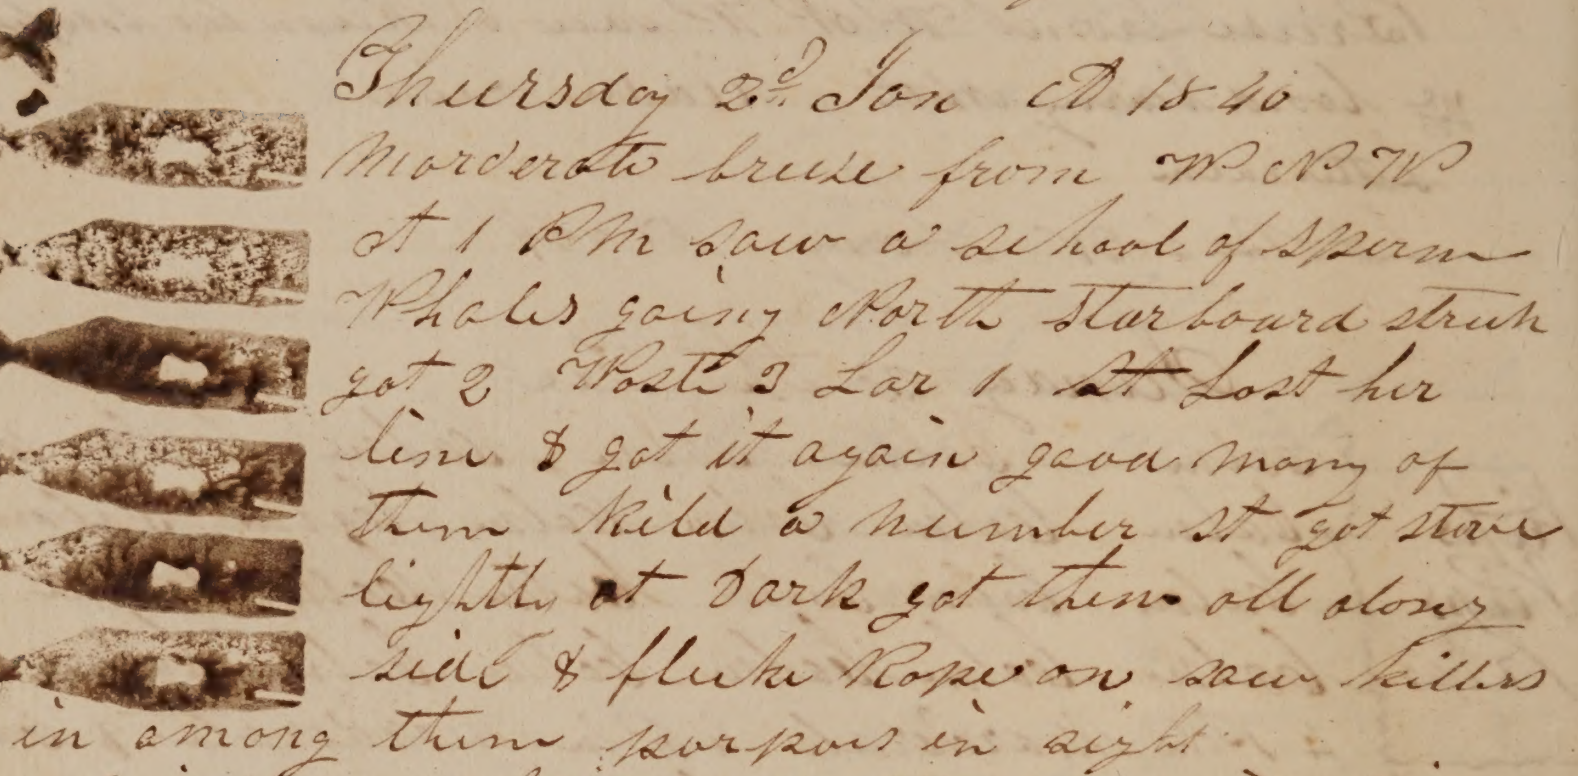 Thursday 2d Jan AD 1840
Morderate breeze from W N W
at 1 PM saw a school of Sperm
Whales going North Starboard struck
got 2 Waste 3 Lar 1 St Lost her
line & got it again good many of
them kild a number st got stove
lightly at Dark got them all along
side & fluke Rope on saw killers
in among them porpois in sight